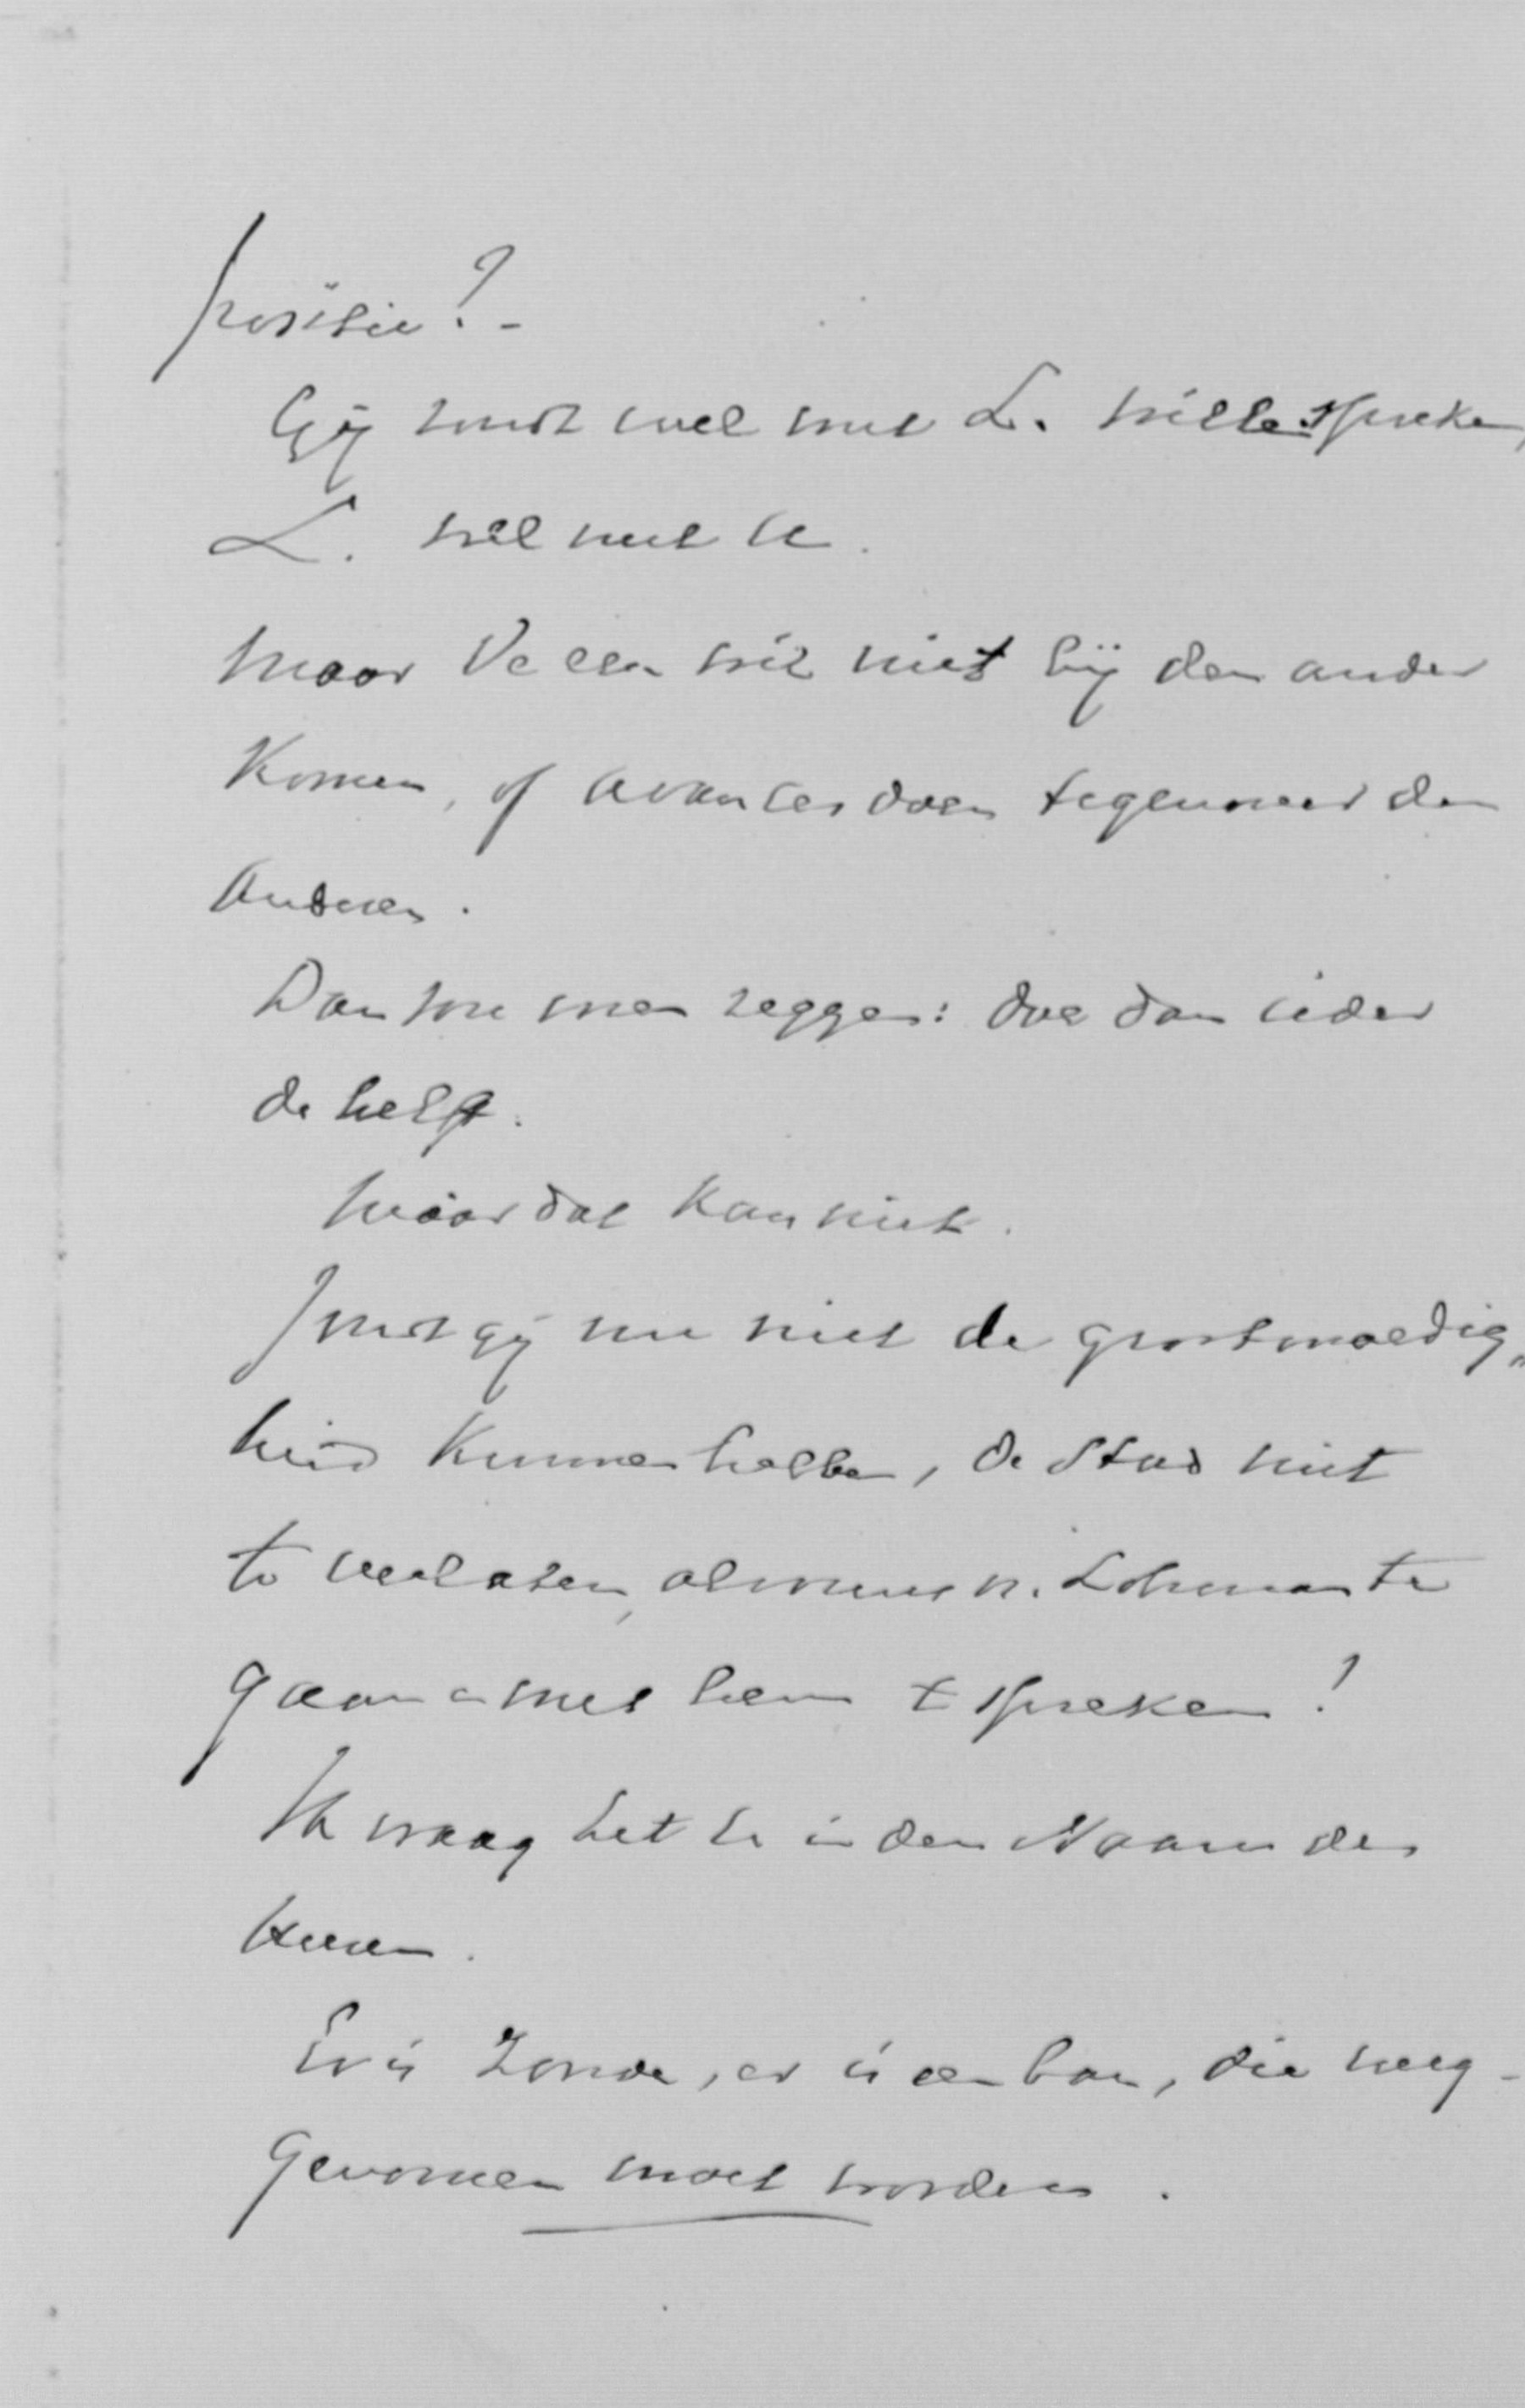 positie? -
Gij zoudt wel met L. willen spreken,
L. wel met U.
Maar de een wil niet bij den ander
komen, of avances doen tegenover den
anderen.
Dan zou men zeggen: doe dan ieder
de helft.
Maar dat kan niet.
Zoudt gij nu niet de grootmoedig„
heid kunnen hebben, de stad niet
te verlaten, alvorens n. Lohman te
gaan en met hem te spreken!
Ik vraag het U in den Naam des
Heeren.
Er is zonde, er is een ban, die weg-
genomen moet worden.